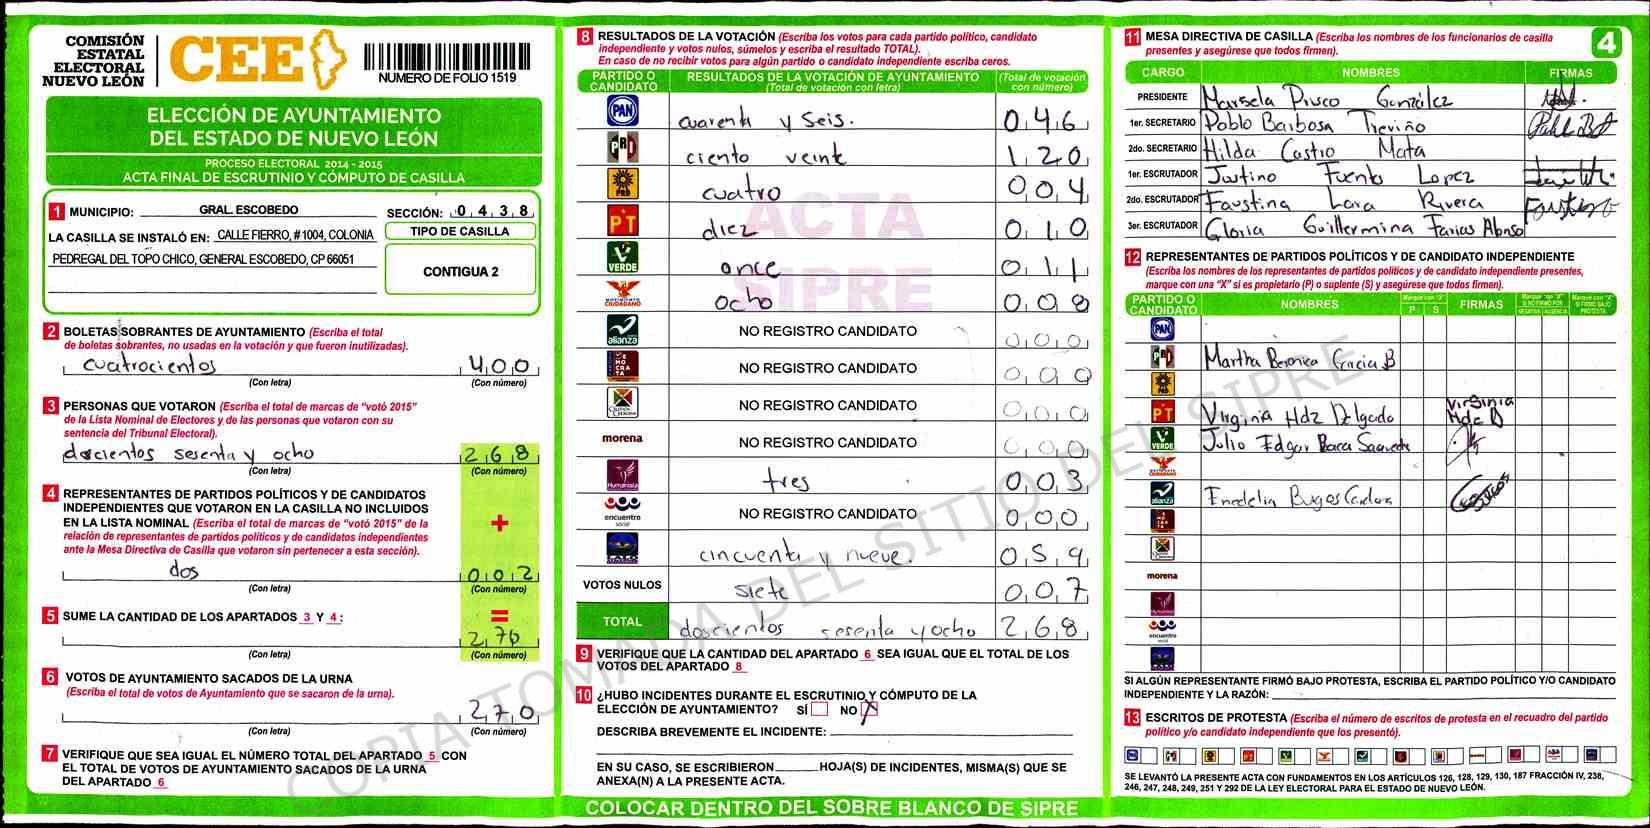 COMISIÓN
ESTATAL
ELECTORAL
NUEVO LEÓN
CEE
NUMERO DE FOLIO 1519
ELECCIÓN DE AYUNTAMIENTO
DEL ESTADO DE NUEVO LEÓN
PROCESO ELECTORAL 2014 - 2015
ACTA FINAL DE ESCRUTINIO Y CÓMPUTO DE CASILLA
1 MUNICIPIO: GRAL. ESCOBEDO SECCIÓN: 0 4 3 8
LA CASILLA SE INSTALÓ EN: CALLE FIERRO, #1004, COLONIA
PEDREGAL DEL TOPO CHICO, GENERAL ESCOBEDO, CP 66051
TIPO DE CASILLA
CONTIGUA 2
2 BOLETAS SOBRANTES DE AYUNTAMIENTO (Escriba el total
de boletas sobrantes, no usadas en la votación y que fueron inutilizadas).
cuatrocientos 4 0 0
(Con letra) (Con número)
3 PERSONAS QUE VOTARON (Escriba el total de marcas de “votó 2015”
de la Lista Nominal de Electores y de las personas que votaron con su
sentencia del Tribunal Electoral).
doscientos sesenta y ocho 2 6 8
(Con letra) (Con número)
4 REPRESENTANTES DE PARTIDOS POLÍTICOS Y DE CANDIDATOS
INDEPENDIENTES QUE VOTARON EN LA CASILLA NO INCLUIDOS
EN LA LISTA NOMINAL (Escriba el total de marcas de “votó 2015” de la
relación de representantes de partidos políticos y de candidatos independientes
ante la Mesa Directiva de Casilla que votaron sin pertenecer a esta sección).
+
dos 0 0 2
(Con letra) (Con número)
5 SUME LA CANTIDAD DE LOS APARTADOS 3 Y 4: =
2 7 0
(Con letra) (Con número)
6 VOTOS DE AYUNTAMIENTO SACADOS DE LA URNA
(Escriba el total de votos de Ayuntamiento que se sacaron de la urna).
2 7 0
(Con letra) (Con número)
7 VERIFIQUE QUE SEA IGUAL EL NÚMERO TOTAL DEL APARTADO 5 CON
EL TOTAL DE VOTOS DE AYUNTAMIENTO SACADOS DE LA URNA
DEL APARTADO 6
8 RESULTADOS DE LA VOTACIÓN (Escriba los votos para cada partido político, candidato
independiente y votos nulos, súmelos y escriba el resultado TOTAL).
En caso de no recibir votos para algún partido o candidato independiente escriba ceros.
PARTIDO O CANDIDATO RESULTADOS DE LA VOTACIÓN DE AYUNTAMIENTO (Total de votación con letra) (Total de votación con número)
PAN cuarenta y seis. 0 4 6
PRI ciento veinte 1 2 0
PRD cuatro 0 0 4
PT diez 0 1 0
VERDE once 0 1 1
MOVIMIENTO CIUDADANO ocho 0 0 8
alianza NO REGISTRO CANDIDATO 0 0 0
DEMOCRATA NO REGISTRO CANDIDATO 0 0 0
NO REGISTRO CANDIDATO 0 0 0
morena NO REGISTRO CANDIDATO 0 0 0
Humanista tres 0 0 3
encuentro social NO REGISTRO CANDIDATO 0 0 0
cincuenta y nueve. 0 5 9
VOTOS NULOS siete 0 0 7
TOTAL doscientos sesenta y ocho 2 6 8
ACTA
SIPRE
9 VERIFIQUE QUE LA CANTIDAD DEL APARTADO 6 SEA IGUAL QUE EL TOTAL DE LOS
VOTOS DEL APARTADO 8
10 ¿HUBO INCIDENTES DURANTE EL ESCRUTINIO Y CÓMPUTO DE LA
ELECCIÓN DE AYUNTAMIENTO? SÍ NO X
DESCRIBA BREVEMENTE EL INCIDENTE:
EN SU CASO, SE ESCRIBIERON HOJA(S) DE INCIDENTES, MISMA(S) QUE SE
ANEXA(N) A LA PRESENTE ACTA.
COLOCAR DENTRO DEL SOBRE BLANCO DE SIPRE
11 MESA DIRECTIVA DE CASILLA (Escriba los nombres de los funcionarios de casilla
presentes y asegúrese que todos firmen).
4
CARGO NOMBRES FIRMAS
PRESIDENTE Marsela Prusco González
1er. SECRETARIO Pablo Barbosa Treviño
2do. SECRETARIO Hilda Castro Mata
1er. ESCRUTADOR Justino Fuento Lopez
2do. ESCRUTADOR Faustina Lara Rivera
3er. ESCRUTADOR Gloria Guillermina Farias Alonso
12 REPRESENTANTES DE PARTIDOS POLÍTICOS Y DE CANDIDATO INDEPENDIENTE
(Escriba los nombres de los representantes de partidos políticos y de candidato independiente presentes,
marque con una “X” si es propietario (P) o suplente (S) y asegúrese que todos firmen).
PARTIDO O CANDIDATO NOMBRES Marque con “X” P S FIRMAS Marque con “X” SI NO FIRMÓ POR NEGATIVA AUSENCIA Marque con “X” SI FIRMÓ BAJO PROTESTA
PAN
PRI Martha Beronica Garcia B
PRD
PT Virginia Hdz Delgado Virginia Hdz D
VERDE Julio Edgar Baca Saavedra
alianza Enedelia Burgos
morena
encuentro social
SI ALGÚN REPRESENTANTE FIRMÓ BAJO PROTESTA, ESCRIBA EL PARTIDO POLÍTICO Y/O CANDIDATO
INDEPENDIENTE Y LA RAZÓN:
13 ESCRITOS DE PROTESTA (Escriba el número de escritos de protesta en el recuadro del partido
político y/o candidato independiente que los presentó).
SE LEVANTÓ LA PRESENTE ACTA CON FUNDAMENTOS EN LOS ARTÍCULOS 126, 128, 129, 130, 187 FRACCIÓN IV, 238,
246, 247, 248, 249, 251 Y 292 DE LA LEY ELECTORAL PARA EL ESTADO DE NUEVO LEÓN.
COPIA TOMADA DEL SITIO DEL SIPRE